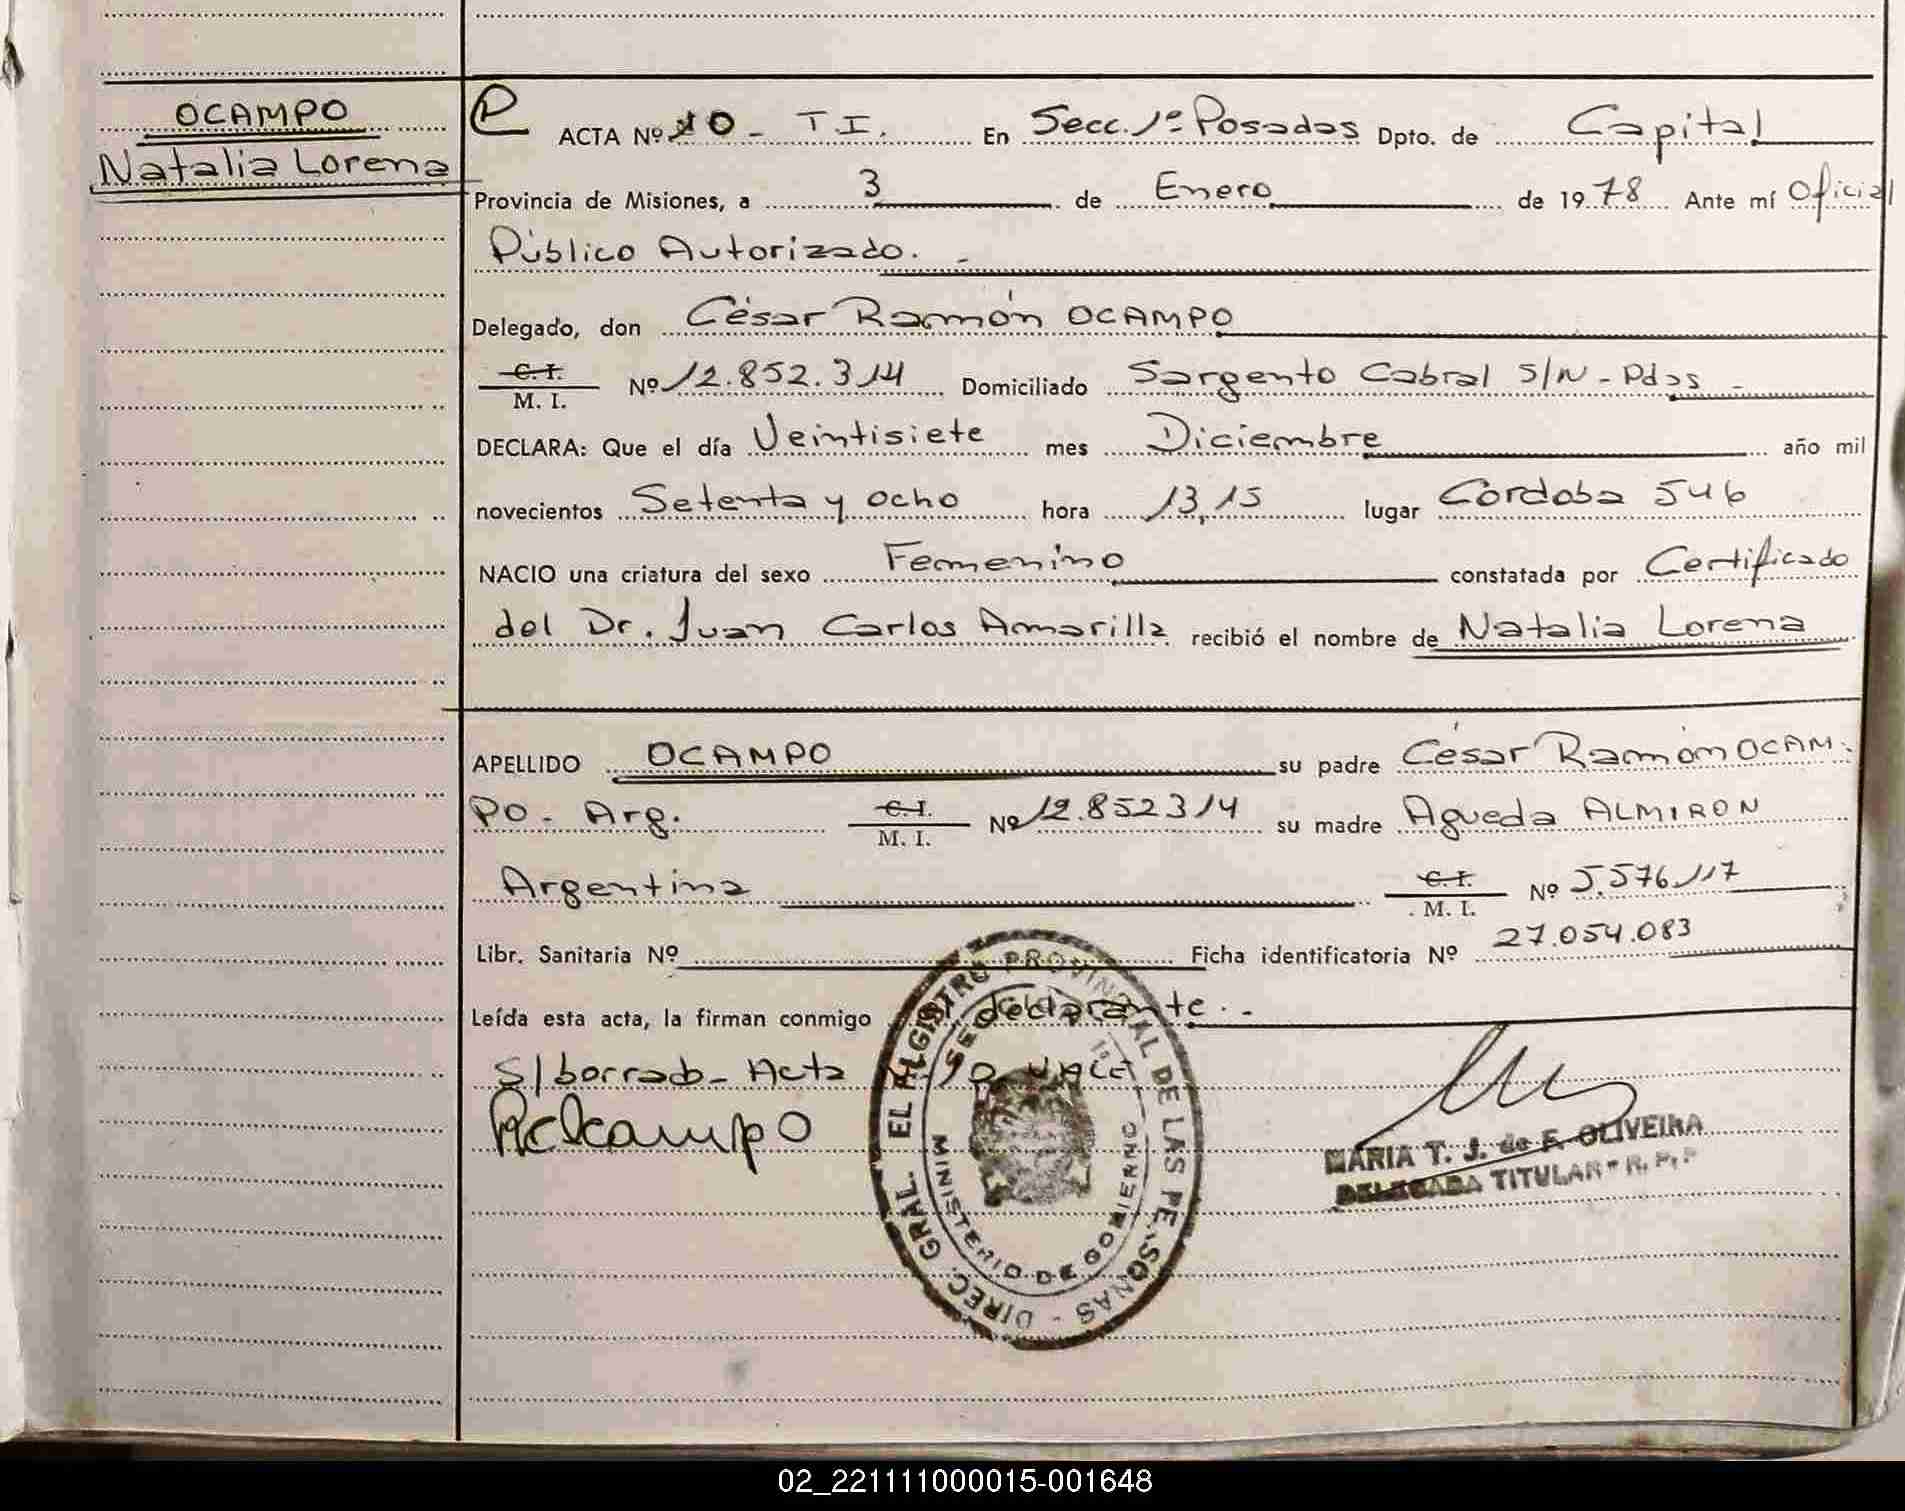 OCAMPO
Natalia Lorena
ACTA Nº 10 - T.I. En Secc. 1º Posadas Dpto. de Capital
Provincia de Misiones, a 3 de Enero de 1978 Ante mí Oficial
Público Autorizado. -
Delegado, don César Ramón OCAMPO
C.I. M.I. Nº 12.852.314 Domiciliado Sargento Cabral S/N - Pdas -
DECLARA: Que el día Veintisiete mes Diciembre año mil
novecientos Setenta y ocho hora 13,15 lugar Córdoba 546
NACIO una criatura del sexo Femenino constatada por Certificado
del Dr. Juan Carlos Amarilla recibió el nombre de Natalia Lorena
APELLIDO OCAMPO su padre César Ramón OCAM-
PO - Arg. C.I. M.I. Nº 12.852314 su madre Agueda ALMIRON
Argentina C.I. M.I. Nº 5.576.117
Libr. Sanitaria Nº Ficha identificatoria Nº 27.054.083
Leída esta acta, la firman conmigo el declarante. -
S/borrado - Acta 10 VALE
DIREC. GRAL. EL REGISTRO PROVINCIAL DE LAS PERSONAS -
MINISTERIO DE GOBIERNO
MARIA T. J. de F. OLIVEIRA
DELEGADA TITULAR - R. P. P.
02_221111000015-001648